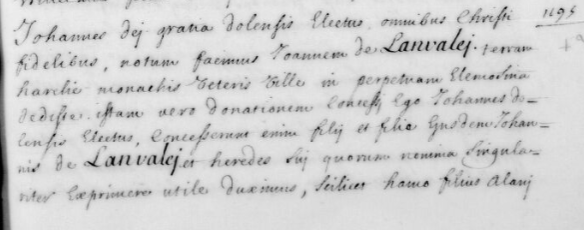 Johannes dej gratia dolensis Electus omnibus Christi 1195
fidelibus, notum facimus Joannem de Lanvalej terram
harelie monachis Veteris Ville in perpetuam Elemosina
dedisse. istam vero donationem Concessi Ego Johannes do=
lensis Electus, Concesserunt enim filij et filia Ejusdem Johan=
nis de Lanvalej et heredes sij quorum nomina Singula=
riter Exprimere utile duximus, Scilicet hamo filius Alanj